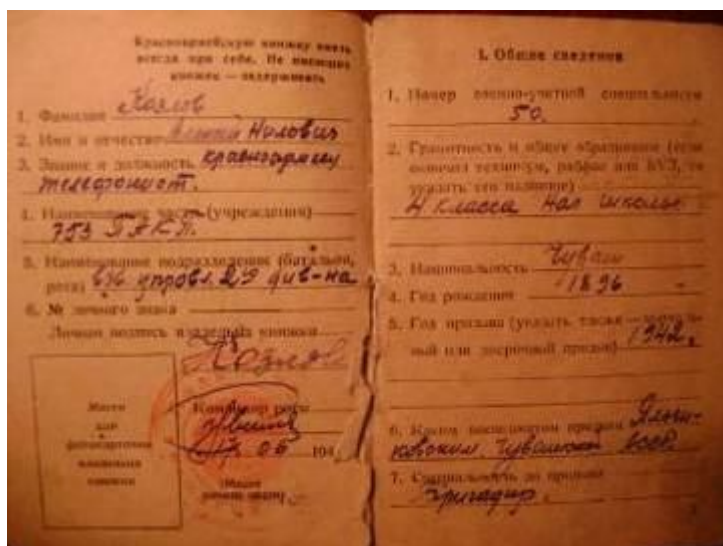 Красноармейскую книжку иметь
всегда при себе. Не имеющих
книжек — задерживать
1. Фамилия Козлов
2. Имя и отчество Нилович
3. Звание и должность красноармеец
телефонист.
4. Наименование части (учреждения)
753
5. Наименование подразделения (батальон,
рота) упровл. 29 див-на
6. № личного знака
Личная подпись владельца книжки
Козлов
Место
для
фотокарточки
владельца
книжки
Командир роты
17 05 194
I. Общие сведения
1. Номер военно-учетной специальности
50.
2. Грамотность и общее образование (если
окончил техникум, рабфак или ВУЗ, то
указать его название)
4 класса нач школы.
3. Национальность Чуваш
4. Год рождения 1896
5. Год призыва (указать также —
ный или досрочный призыв) 1942.
6. Каким военкоматом призван Яльчи-
ковским, АССР.
7. Специальность до призыва
Бригадир.